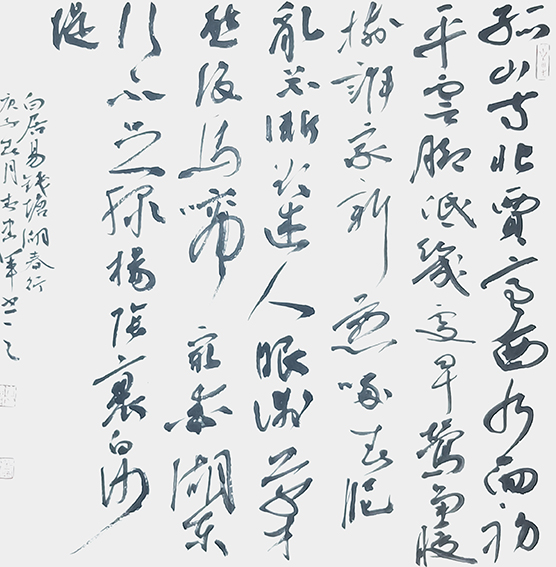 孤山寺北賈亭西水面初
平雲脚低幾處早鶯爭暖
樹誰家新燕啄春泥
亂花漸欲迷人眼淺草才
能沒馬蹄最愛湖東
行不足綠楊陰裏白沙
堤
白居易錢塘湖春行
庚子春月